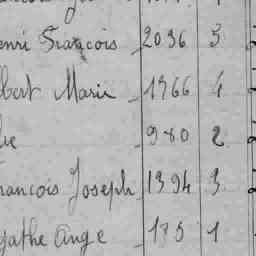 enri François 2036 3
lbert Marie 1966 4
980 2
rançois Joseph 1394 3
gathe Ange 175 1